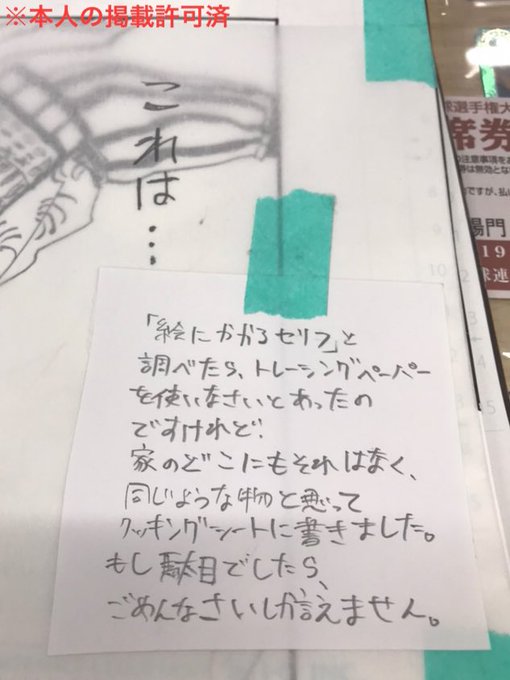 ※本人の掲載許可済
これは…
「絵にかかるセリフ」と
調べたら、トレーシングペーパー
を使いなさいとあったの
ですけれど、
家のどこにもそれはなく、
同じような物と思って
クッキングシートに書きました。
もし駄目でしたら、
ごめんなさいしか言えません。
球選手権大
席券
の注意事項をお
券は無効とな
ですが、払
場門
19
球連